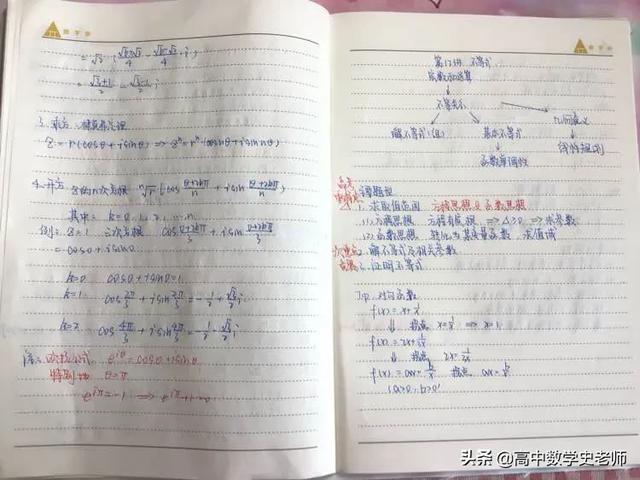 = √2 (√6+√2/4 - √6-√2/4 i)
= √3+1/2 - √3-1/2 i
3. 乘方:棣莫弗定理
z = r(cosθ + i sinθ) ⇒ zⁿ = rⁿ(cosnθ + i sin nθ)
4. 开方 z的n次方根 ⁿ√r [cos θ+2kπ/n + i sin θ+2kπ/n]
其中: k = 0, 1, 2, … n
例: z = 1 三次方根 cos 0+2kπ/3 + i sin 0+2kπ/3
= cos0 + i sin0
k=0 cos0 + i sin0 = 1
k=1 cos 2π/3 + i sin 2π/3 = -1/2 + √3/2 i
k=2 cos 4π/3 + i sin 4π/3 = -1/2 - √3/2 i
注: 欧拉公式 e^iθ = cosθ + i sinθ
特别地 θ=π
e^iπ = -1 ⇒ e^iπ + 1 = 0
第12讲 不等式
不等式
几何意义
解不等式(组) 基本不等式
线性规划
函数单调性
1. 求取值范围 方程思想及函数思想
(1) 方程思想 方程有根 ⇒ Δ≥0 ⇒ 求参数
(2) 函数思想 转化为 函数 求值域
2. 解不等式及相关参数
3. 证明不等式
对勾函数
f(x) = x + 1/x
↓ 拐点 x = 1/x ⇒ x = 1
f(x) = 2x + 1/2x
↓ 拐点 2x = 1/2x
f(x) = ax + b/x 拐点 ax = b/x
(a>0, b>0)
头条 @高中数学史老师